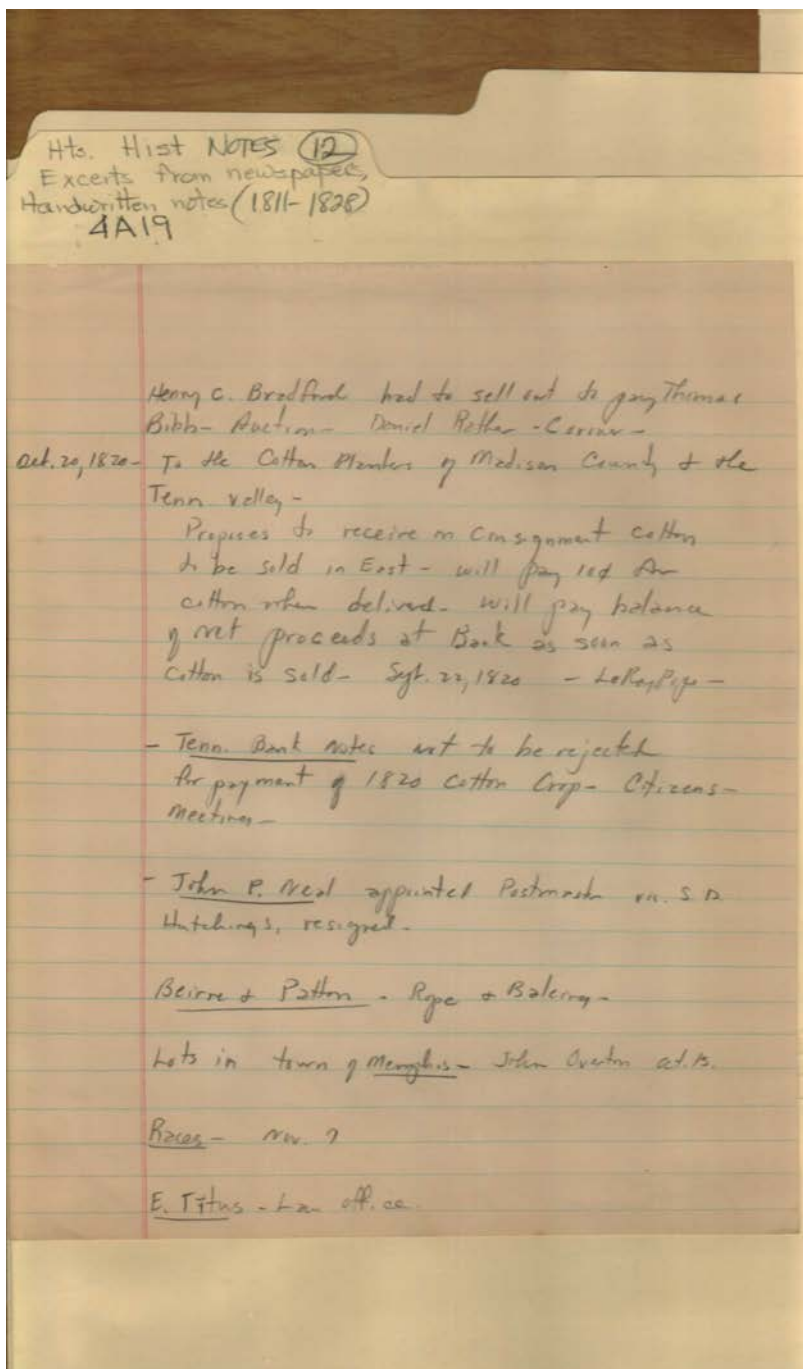 Hts. Hist NOTES 12
Excerts from newspapers,
Handwritten notes (1811-1828)
4A19
Henry C. Bradford had to sell out to pay Thomas
Bibb- Auction- Daniel Rather -
Oct. 20, 1820- To the Cotton Planters of Madison County & the
Tenn valley-
Proposes to receive on Consignment cotton
to be sold in East - will pay 10¢ for
cotton when delivered. will pay balance
of net proceeds at Bank as soon as
Cotton is sold- Sept. 22, 1820 - LeRoy Pope -
- Tenn. Bank notes not to be rejected
for payment of 1820 Cotton Crop- Citizens-
meeting-
- John P. Neal appointed Postmaster vic. S. D.
Hutchings, resigned.
Beirne & Patton - Rope & Baleing-
Lots in town of Memphis- John Overton
Races- Nov. 7
E. Titus - Law office.